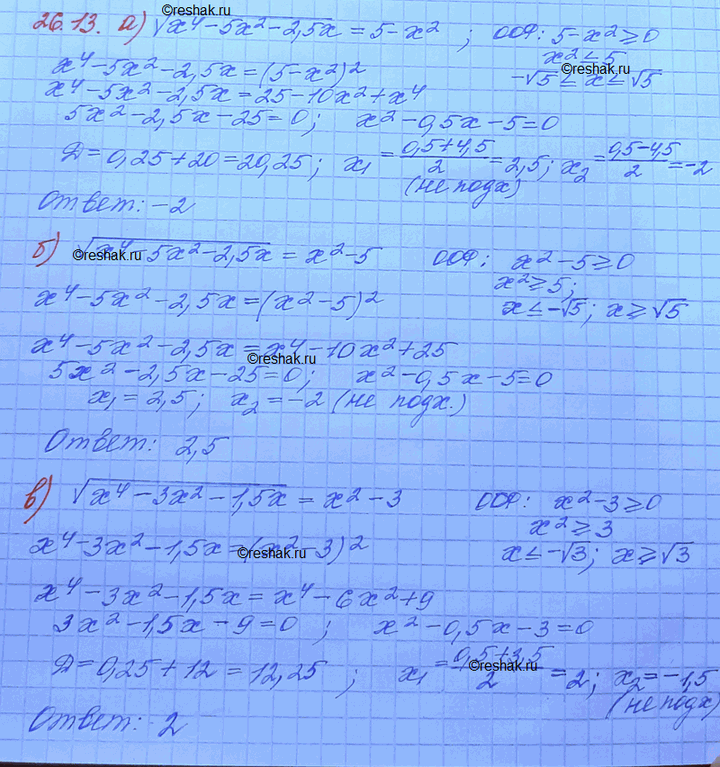 ©reshak.ru
26.13. а) √(x⁴-5x²-2,5x) = 5-x² ; ООФ: 5-x²≥0
x²≤5
©reshak.ru
x⁴-5x²-2,5x=(5-x²)² -√5≤x≤√5
x⁴-5x²-2,5x=25-10x²+x⁴
5x²-2,5x-25=0; x²-0,5x-5=0
Д=0,25+20=20,25; x₁=(0,5+4,5)/2=2,5; x₂=(0,5-4,5)/2=-2
(не подх)
Ответ: -2
б) √(x⁴-5x²-2,5x) = x²-5 ООФ: x²-5≥0
©reshak.ru
x²≥5;
x⁴-5x²-2,5x=(x²-5)² x≤-√5; x≥√5
x⁴-5x²-2,5x=x⁴-10x²+25
©reshak.ru
5x²-2,5x-25=0; x²-0,5x-5=0
x₁=2,5; x₂=-2 (не подх.)
Ответ: 2,5
в) √(x⁴-3x²-1,5x) = x²-3 ООФ: x²-3≥0
x²≥3
x⁴-3x²-1,5x=(x²-3)² x≤-√3; x≥√3
©reshak.ru
x⁴-3x²-1,5x=x⁴-6x²+9
3x²-1,5x-9=0 ; x²-0,5x-3=0
Д=0,25+12=12,25 ; x₁=(0,5+3,5)/2=2; x₂=-1,5
©reshak.ru
(не подх)
Ответ: 2